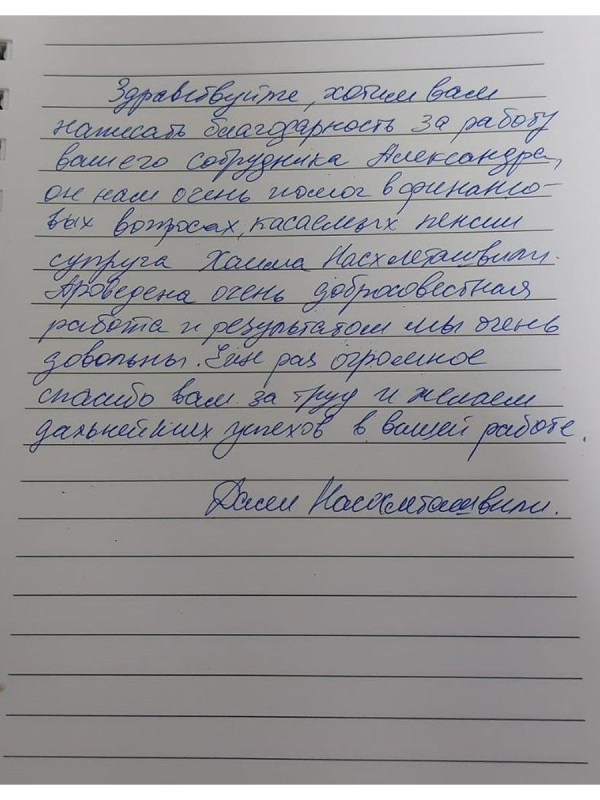 Здравствуйте, хотим вам
написать благодарность за работу
вашего сотрудника Александра,
он нам очень помог в финансо-
вых вопросах, касаемых пенсии
супруга Хаима Насхлеташвили.
Проведена очень добросовестная
работа и результатом мы очень
довольны. Ещё раз огромное
спасибо вам за труд и желаем
дальнейших успехов в вашей работе.
Дали Насхлеташвили.